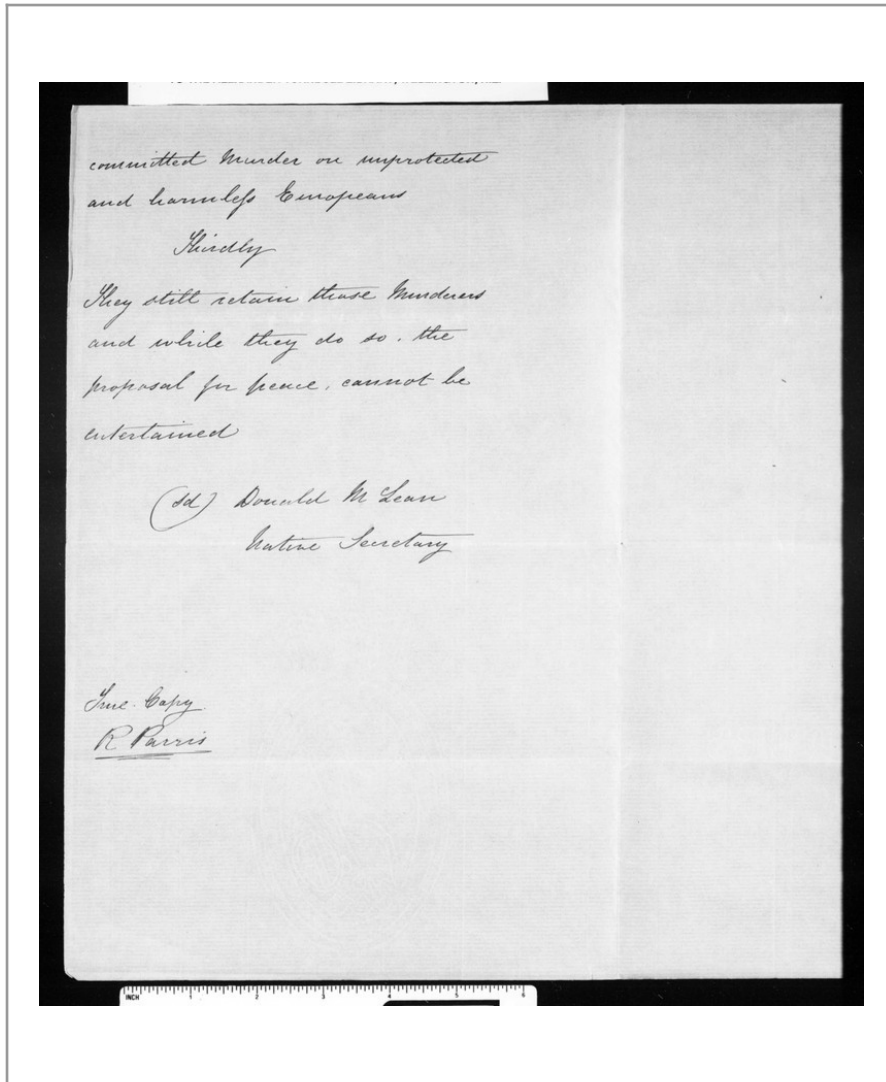 committed Murder on unprotected
and harmless Europeans
Thirdly
They still retain those Murderers
and while they do so, the
proposal for peace, cannot be
entertained
(sd) Donald McLean
Native Secretary
True Copy.
R Parris
INCH 1 2 3 4 5 6